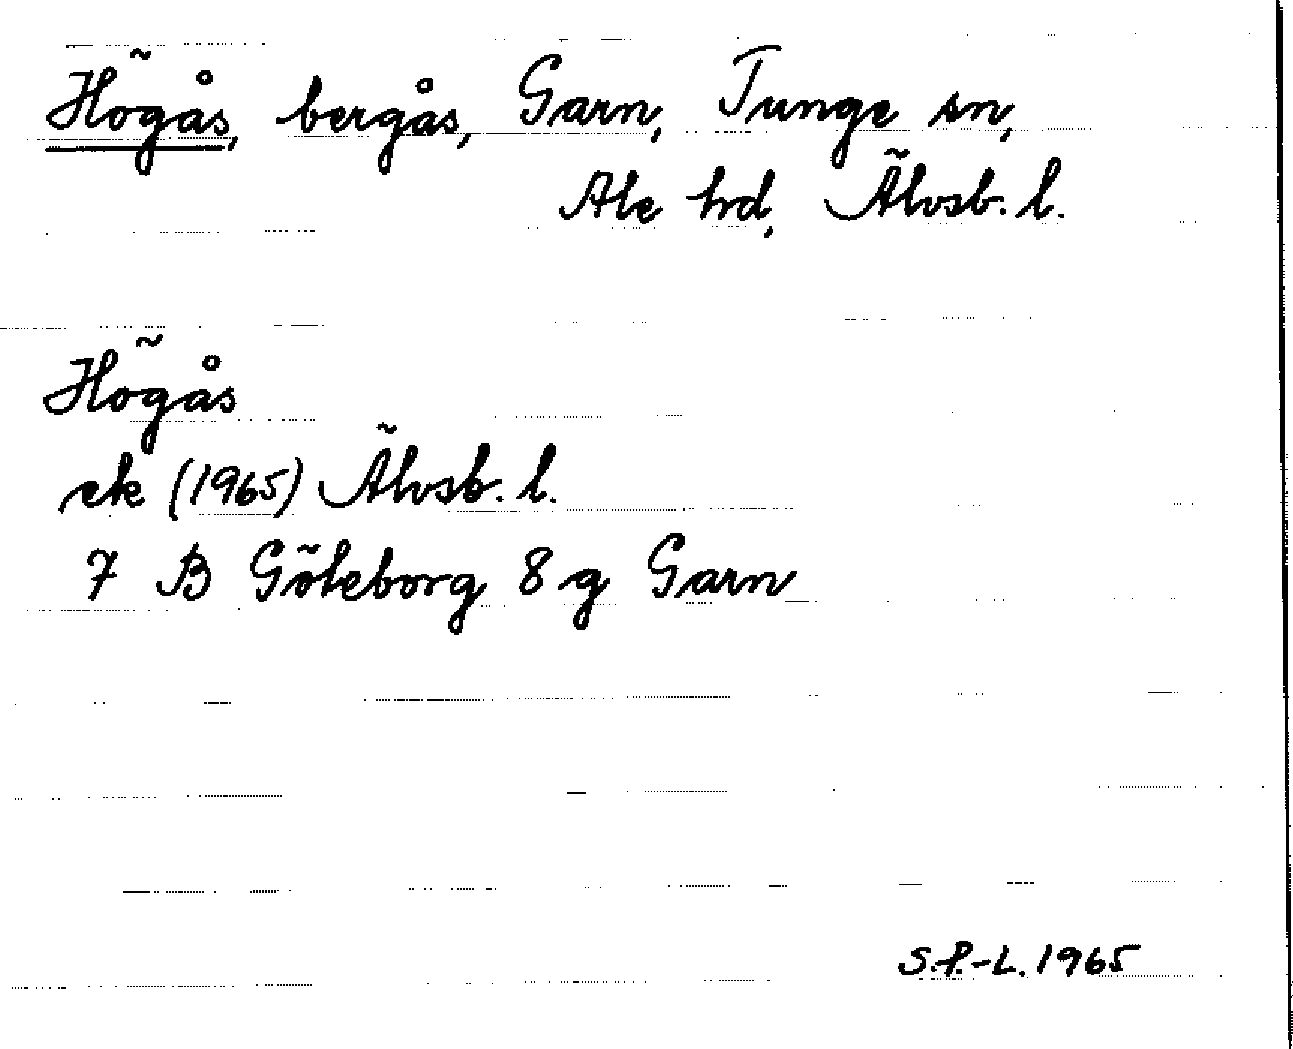 Högås, bergås, Garn, Tunge sn,
Ale hrd, Älvsb. l.
Högås
ek (1965) Älvsb. l.
7 B Göteborg 8 g Garn
S.P.-L. 1965